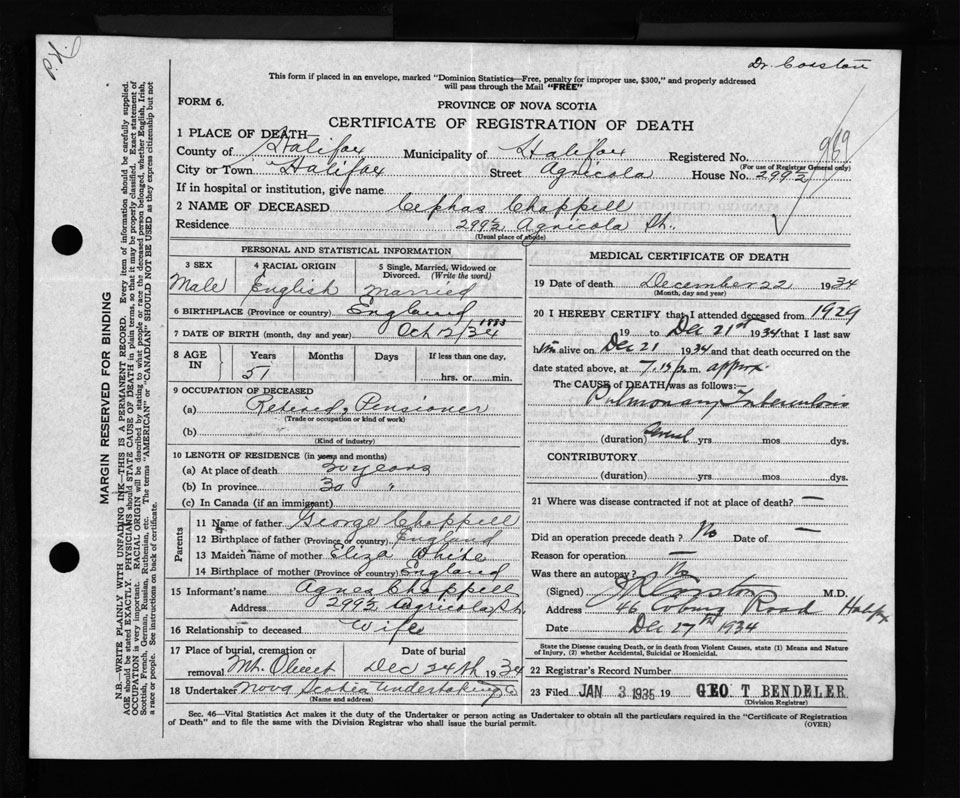 Dr. Corston
This form if placed in an envelope, marked "Dominion Statistics—Free, penalty for improper use, $300," and properly addressed
will pass through the Mail "FREE"
FORM 6.
PROVINCE OF NOVA SCOTIA
CERTIFICATE OF REGISTRATION OF DEATH
1 PLACE OF DEATH
County of Halifax Municipality of Halifax Registered No. 969
(For use of Registrar General only)
City or Town Halifax Street Agricola House No. 299½
If in hospital or institution, give name
2 NAME OF DECEASED Cephas Chappell
Residence 299½ Agricola St.,
(Usual place of abode)
PERSONAL AND STATISTICAL INFORMATION
3 SEX 4 RACIAL ORIGIN 5 Single, Married, Widowed or Divorced. (Write the word)
Male English Married
6 BIRTHPLACE (Province or country) England
7 DATE OF BIRTH (month, day and year) Oct 12/34 1883
8 AGE IN Years Months Days If less than one day,
51 hrs. or min.
9 OCCUPATION OF DECEASED
(a) Retired, Pensioner
(Trade or occupation or kind of work)
(b)
(Kind of industry)
10 LENGTH OF RESIDENCE (in years and months)
(a) At place of death 30 years
(b) In province 30 "
(c) In Canada (if an immigrant)
Parents
11 Name of father George Chappell
12 Birthplace of father (Province or country) England
13 Maiden name of mother Eliza White
14 Birthplace of mother (Province or country) England
15 Informant's name Agnes Chappell
Address 299½ Agricola, St.
16 Relationship to deceased Wife
17 Place of burial, cremation or removal Mt. Olivet Date of burial Dec 24th 1934
18 Undertaker Nova Scotia Undertaking Co
(Name and address)
MEDICAL CERTIFICATE OF DEATH
19 Date of death December 22 1934
(Month, day and year)
20 I HEREBY CERTIFY that I attended deceased from 1929
19 to Dec 21st 1934 that I last saw
him alive on Dec 21 1934 and that death occurred on the
date stated above, at 7.15 p.m. approx.
The CAUSE of DEATH was as follows:—
Pulmonary Tuberculosis
(duration) Several yrs. mos. dys.
CONTRIBUTORY
(duration) yrs. mos. dys.
21 Where was disease contracted if not at place of death? —
Did an operation precede death? No Date of —
Reason for operation —
Was there an autopsy? No
(Signed) Corston M.D.
Address 46 Coburg Road Halifx
Date Dec 27th 1934
State the Disease causing Death, or in death from Violent Causes, state (1) Means and Nature
of Injury, (2) whether Accidental, Suicidal or Homicidal.
22 Registrar's Record Number
23 Filed JAN 3 1935 19 GEO T BENDELER
(Division Registrar)
Sec. 46—Vital Statistics Act makes it the duty of the Undertaker or person acting as Undertaker to obtain all the particulars required in the "Certificate of Registration
of Death" and to file the same with the Division Registrar who shall issue the burial permit. (OVER)
MARGIN RESERVED FOR BINDING
N.B.—WRITE PLAINLY WITH UNFADING INK—THIS IS A PERMANENT RECORD. Every item of information should be carefully supplied.
AGE should be stated EXACTLY. PHYSICIANS should STATE CAUSE OF DEATH in plain terms, so that it may be properly classified. Exact statement of
OCCUPATION is very important. RACIAL ORIGIN will be described by stating to what people or race the deceased person belonged, whether English, Irish,
Scottish, French, German, Russian, Ruthenian, etc. The terms "AMERICAN" or "CANADIAN" SHOULD NOT BE USED as they express citizenship but not
a race or people. See instructions on back of certificate.